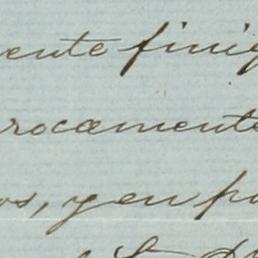 ente finiq
rocamente
os, y en po